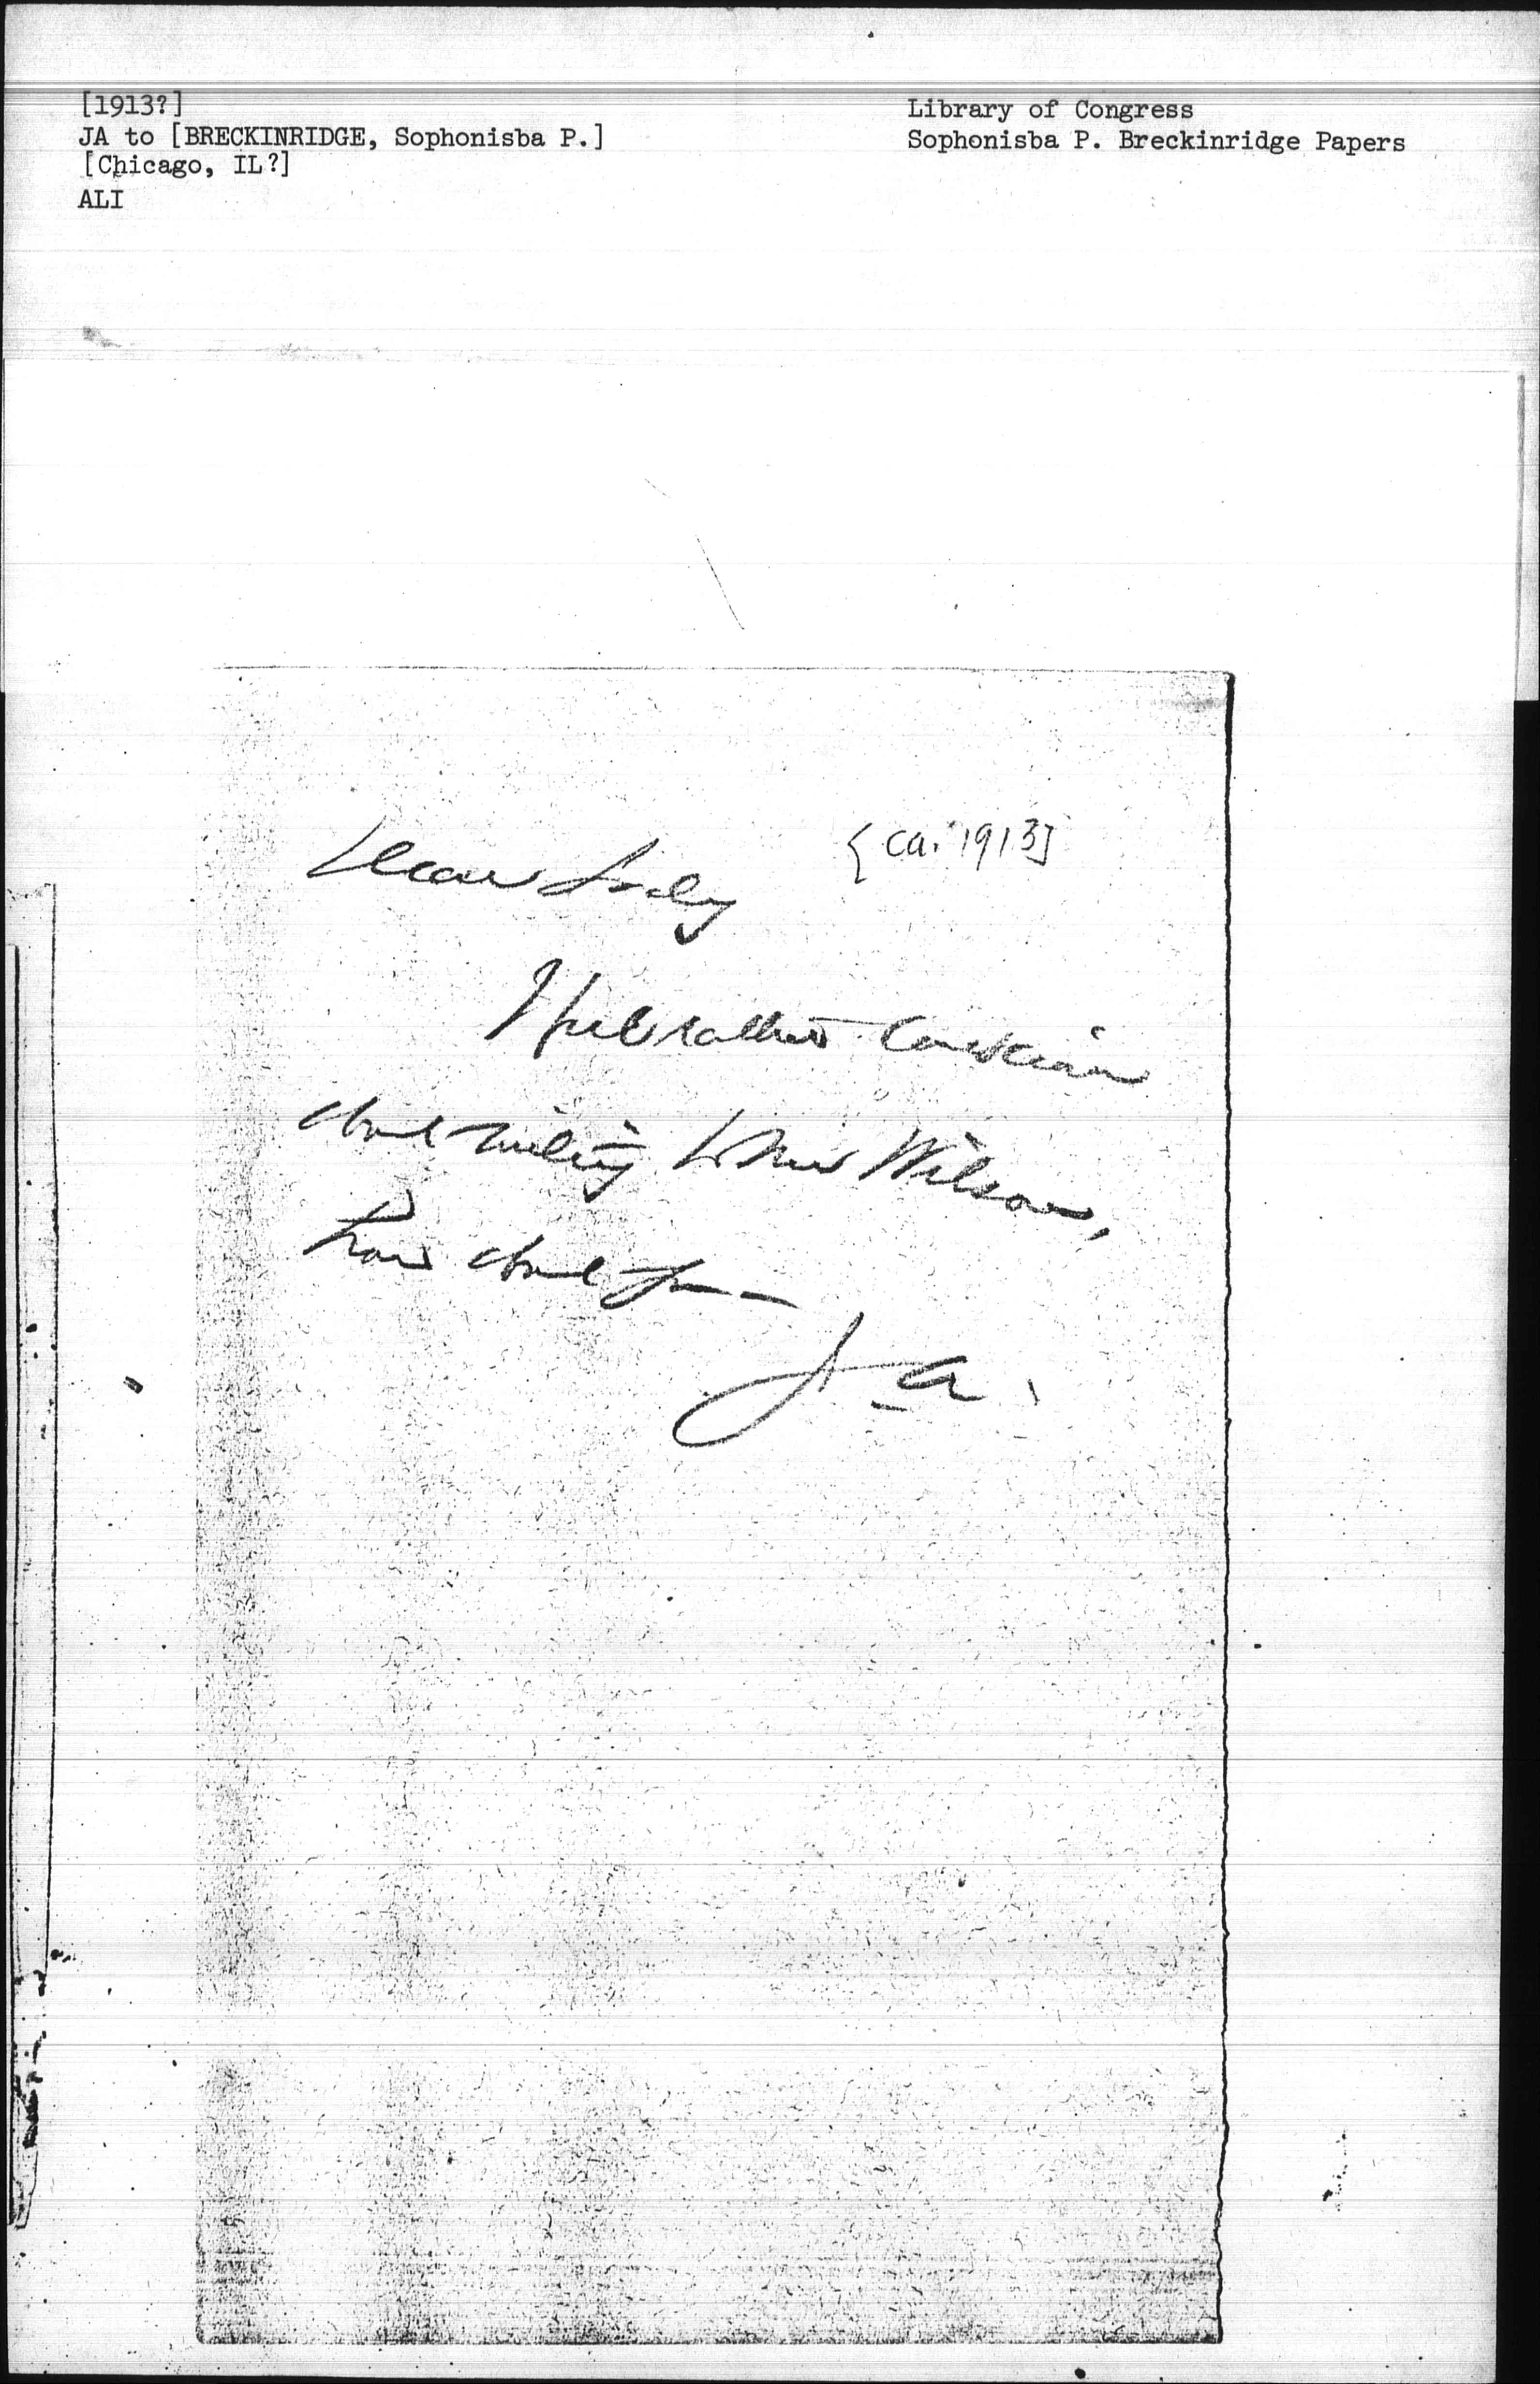 [1913?]
JA to [BRECKINRIDGE, Sophonisba P.]
[Chicago, IL?]
ALI
Library of Congress
Sophonisba P. Breckinridge Papers
[ca. 1913]
Dear Lady
I feel rather
about writing to Mrs Wilson,
how about you —
J A.